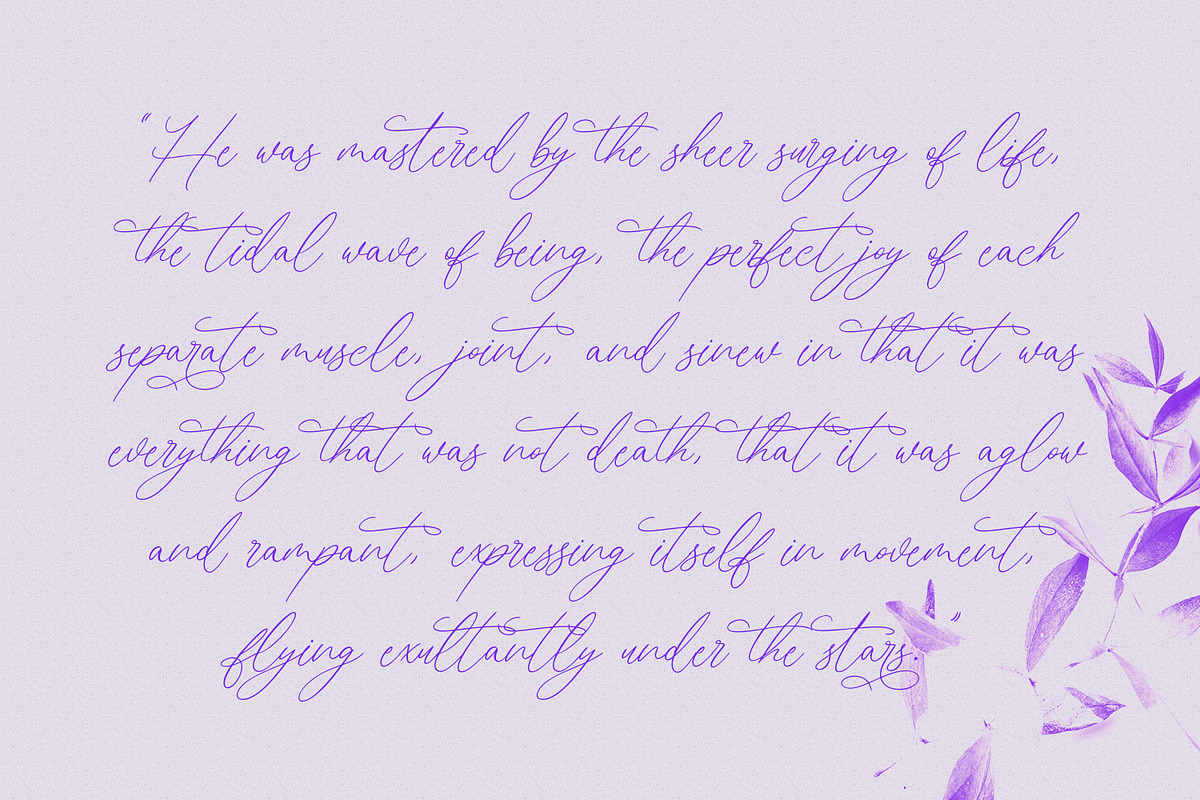 "He was mastered by the sheer surging of life,
the tidal wave of being, the perfect joy of each
separate muscle, joint, and sinew in that it was
everything that was not death, that it was aglow
and rampant, expressing itself in movement,
flying exultantly under the stars."